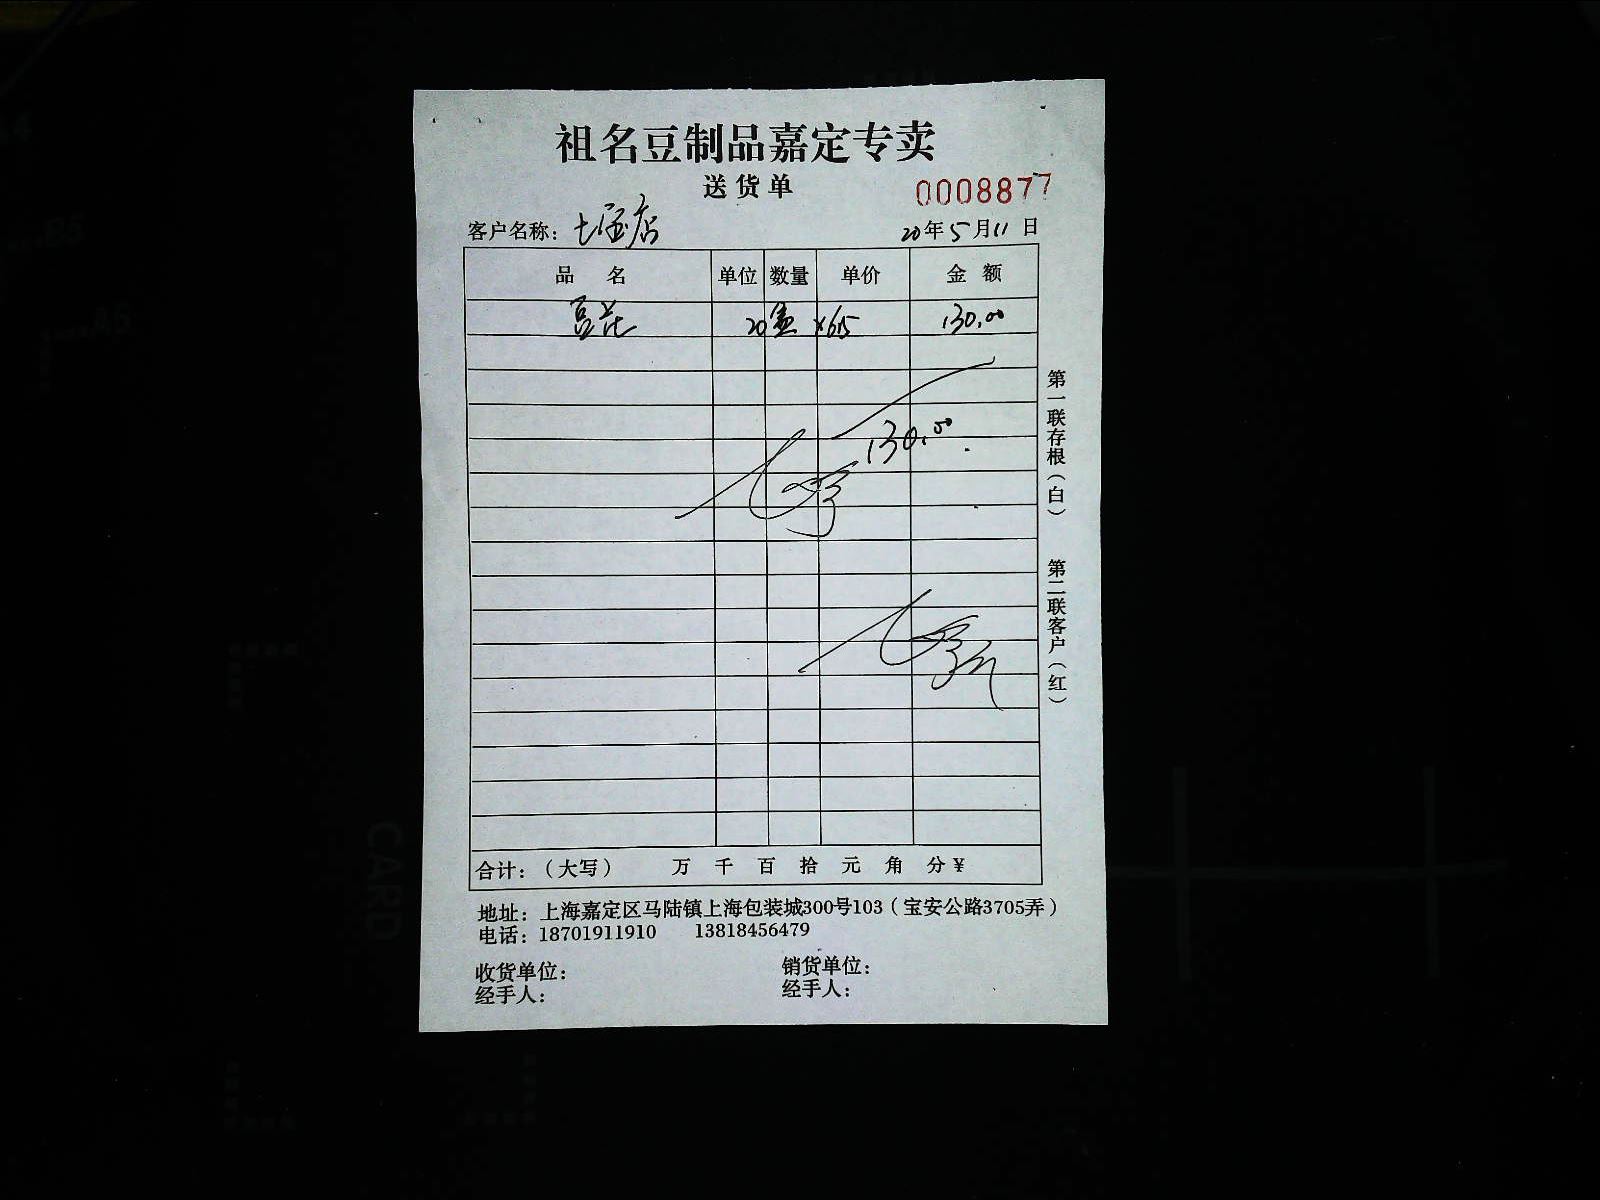 祖名豆制品嘉定专卖
送货单
0008877
客户名称: 七宝店
20年5月11日
品名 单位 数量 单价 金额
豆花 20盒 ×6.5 130.00
130.00
第一联存根(白) 第二联客户(红)
合计:(大写) 万 千 百 拾 元 角 分¥
地址: 上海嘉定区马陆镇上海包装城300号103(宝安公路3705弄)
电话: 18701911910 13818456479
收货单位: 销货单位:
经手人: 经手人: